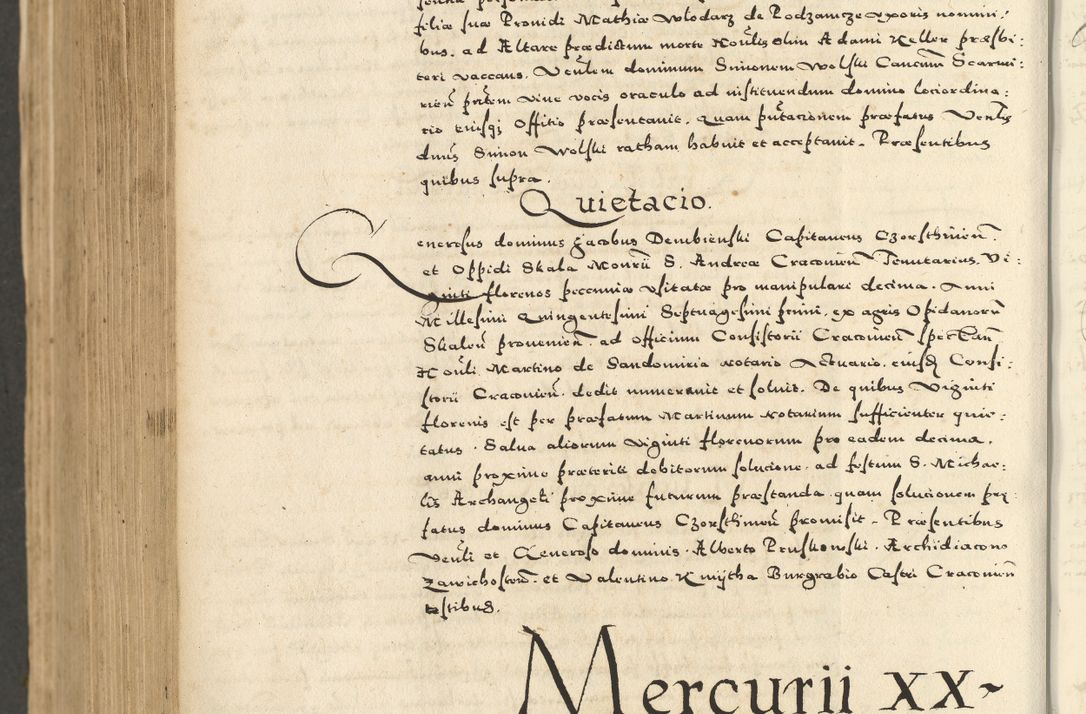 filiæ suæ Pronidi Mathiæ Wlodarz de Podzamcze uxoris nomini,
bus, ad Altare prædictum morte Noũlis olim Adami Keller præsbi:
teri vaccans, Veñlem dominum Simonem Wolski Canum̃ Scarmi:
rien̄ p̃ñtem vive vocis oraculo ad instituendum domino lociordina:
rio eiusq; Offitio præsentavit, Quam pñtationem præfatus Venlis
dnus Simon Wolski ratham habuit et acceptavit. Præsentibus
quibus supra.
Quietacio.
Generosus dominus Jacobus Dembienski Capitaneus Czorsthinen̄
et Oppidi Skala Monrii S. Andreæ Cracovien̄ Tenutarius, Vi:
ginti florenos pecuniæ usitatæ pro manipulari decima, Anni
Millesimi Quingentesimi Septuagesimi primi, ex agris Opidanorū
Skalen̄ provenien̄, ad officium Consistorii Cracovien̄ spectan̄
Noũli Martino de Sandomiria Notario Actuario, eiusd Consi:
storii Cracovien̄, dedit numeravit et solvit. De quibus Viginti
florenis est per præfatum Martinum Notarium sufficienter quie:
tatus. Salva aliorum Viginti florenorum pro eadem decima,
anni proxime præteriti debitorum solucione, ad festum S. Michae:
lis Archangeli proxime futurum præstanda, quam solucionem præ:
fatus dominus Capitaneus Czorsthinen̄ promisit. Præsentibus
Veñli et Generoso dominis, Alberto Pruskowski, Archidiacono
Zawichosten̄, et Valentino Kmijtha Burgrabio Castri Cracovien̄
testibus.
Mercurii XX-